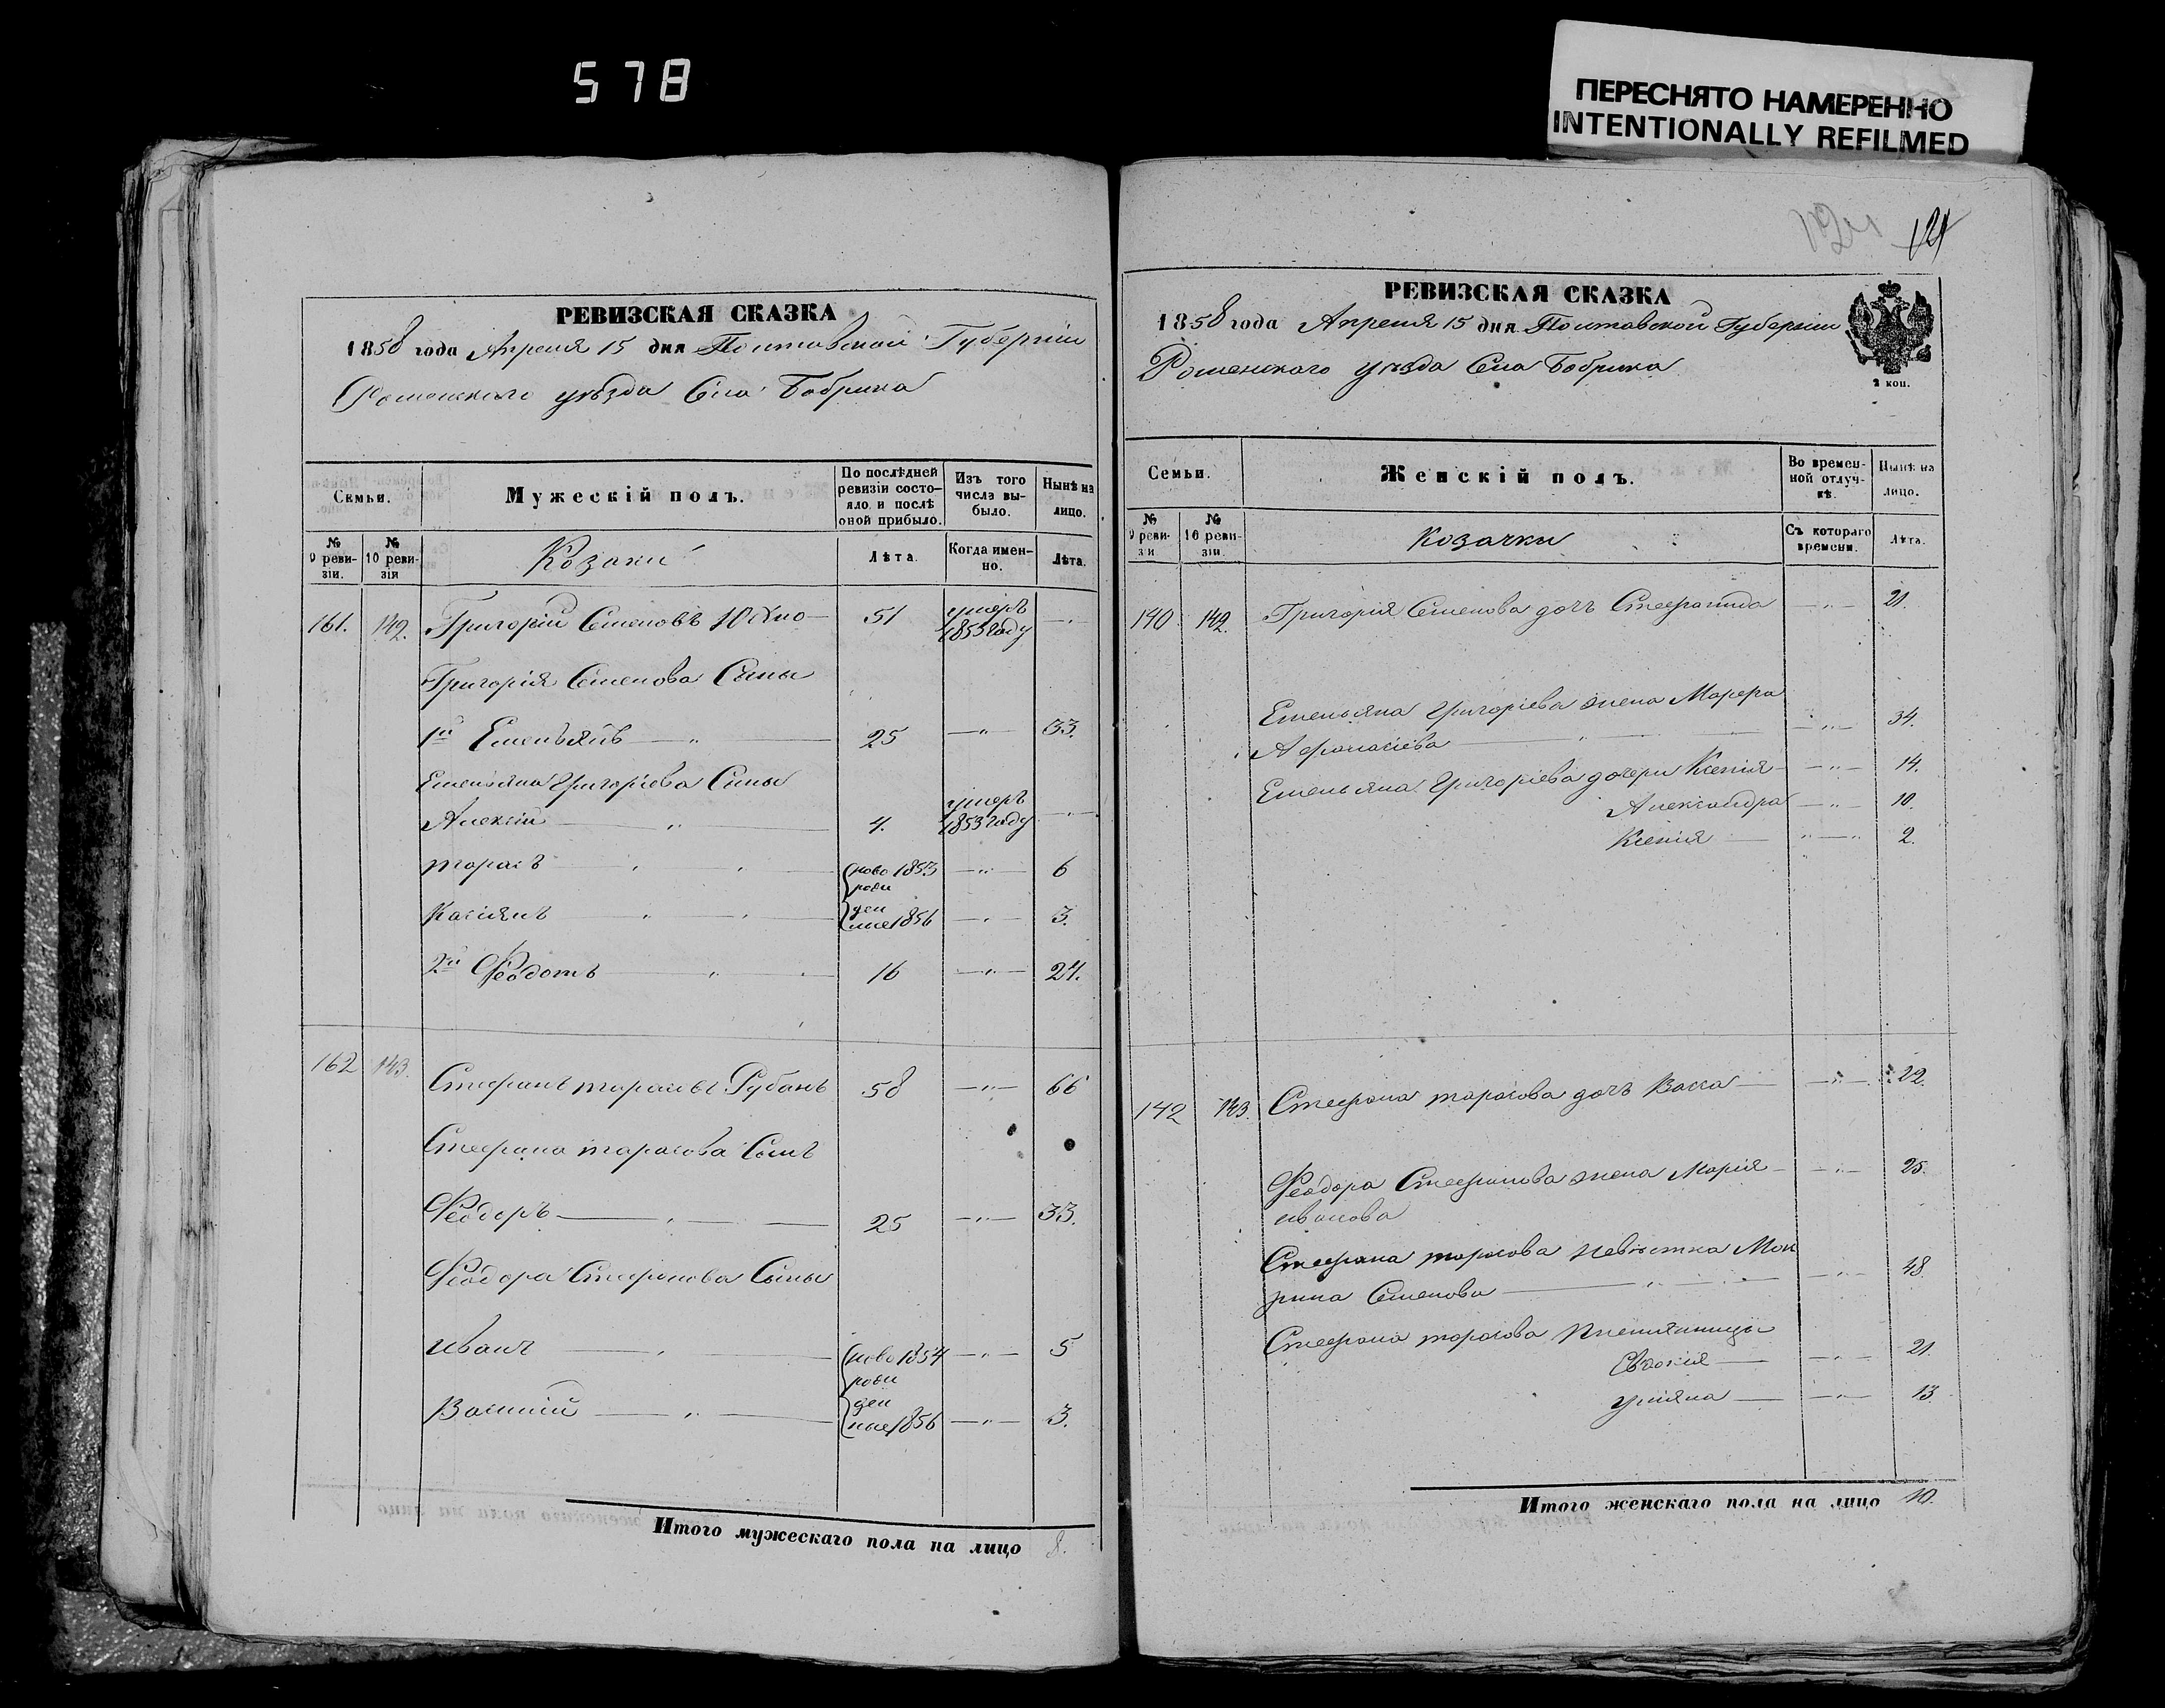 578
ПЕРЕСНЯТО НАМЕРЕННО
INTENTIONALLY REFILMED
РЕВИЗСКАЯ СКАЗКА
1858 года Апреля 15 дня Полтавской Губерніи
Роменского уѣзда Села Бобрика
Семьи.
Мужескій полъ.
По послѣдней ревизіи состояло и послѣ оной прибыло.
Изъ того числа выбыло.
Нынѣ на лицо.
№ 9 ревизіи.
№ 10 ревизіи
Козаки
Лѣта.
Когда именно.
Лѣта.
161. 142. Григорій Семеновъ 51 умеръ 1853 году
Григорія Семенова Сыны
1й Емельянъ 25 33.
Емельяна Григоріева Сыны
Алексій 4. умеръ 1853 году
тарасъ ново 1853 6
рож
Касіянъ ден ные 1856 3.
2й Феодотъ 16 24.
162 143. Стефанъ тарасовъ Рубанъ 58 66
Стефана тарасова Сынъ
Феодоръ 25 33.
Феодора Стефанова Сыны
иванъ ново 1854 5
рож
Василій ден ные 1856 3.
Итого мужескаго пола на лицо 8.
121
РЕВИЗСКАЯ СКАЗКА
1858 года Апреля 15 дня Полтавской Губерніи
Роменского уѣзда Села Бобрика
2 коп.
Семьи.
Женскій полъ.
Во временной отлучкѣ.
Нынѣ на лицо.
№ 9 ревизіи
№ 10 ревизіи.
Козачки
Съ котораго времени.
Лѣта.
140 142. Григорія Семенова дочъ Стефанида 21.
Емельяна Григоріева жена Марфа
Афанасіева 34.
Емельяна Григоріева дочери Ксенія 14.
Александра 10.
Ксенія 2.
142 143. Стефана тарасова дочъ Васса 22.
Феодора Стефанова жена Марія 25.
иванова
Стефана тарасова невѣстка Мок
рина Семенова 48
Стефана тарасова племянницы
Евдокія 21.
уліяна 13
Итого женскаго пола на лицо 10.